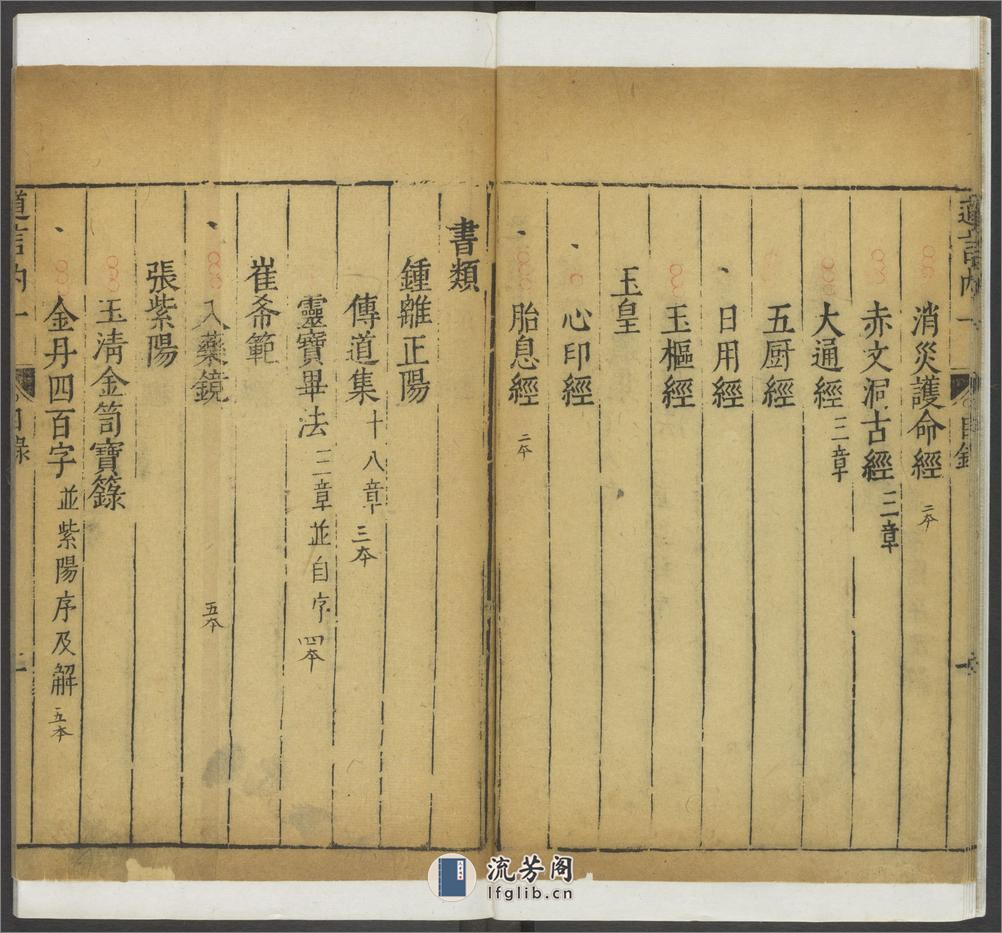 道言內一 目錄 一
消災護命經 二本
赤文洞古經 三章
大通經 三章
五厨經
日用經
玉樞經
玉皇
心印經
胎息經 二本
書類
鍾離正陽
傳道集 十八章 三本
靈寶畢法 三章並自序 四本
崔希範
入藥鏡 五本
張紫陽
玉淸金笥寶籙
金丹四百字 並紫陽序及解 五本
道言內一 目錄 二
流芳阁
lfglib.cn